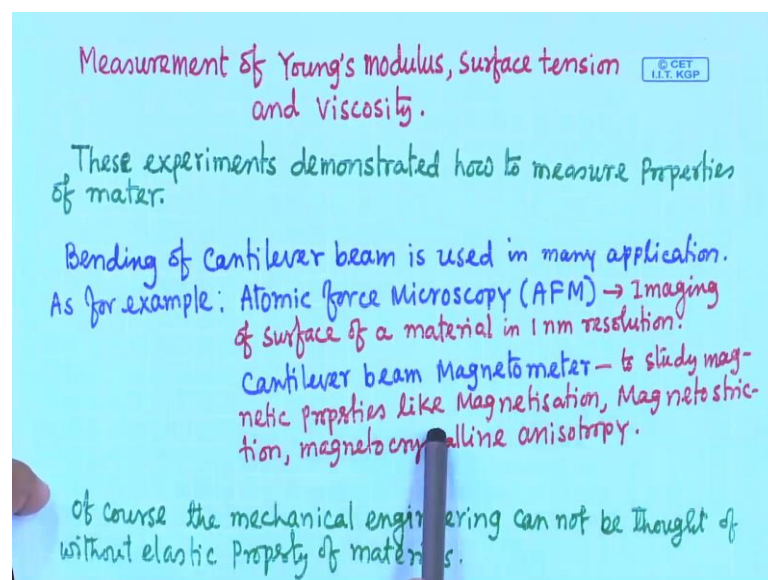 Measurement of Young's modulus, surface tension
© CET
I.I.T. KGP
and Viscosity.
These experiments demonstrated how to measure Properties
of mater.
Bending of Cantilever beam is used in many application.
As for example: Atomic force Microscopy (AFM) → Imaging
of surface of a material in 1 nm resolution.
Cantilever beam Magnetometer – to study mag-
netic propsties like Magnetisation, Magnetostric-
tion, magnetocrystalline anisotropy.
Of course the mechanical engineering can not be thought of
without elastic Property of materials.